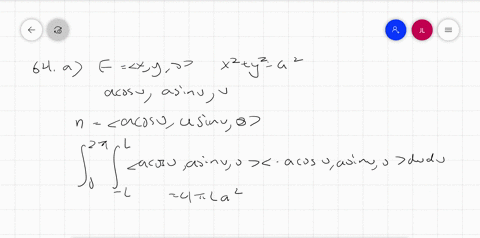 64. a) F = <x, y, 0> x² + y² = a²
a cos u, a sin u, v
n = <a cos u, a sin u, 0>
∫₀^2π ∫₋L^L <a cos u, a sin u, 0> <· a cos u, a sin u, 0> dv du
= 4πLa²